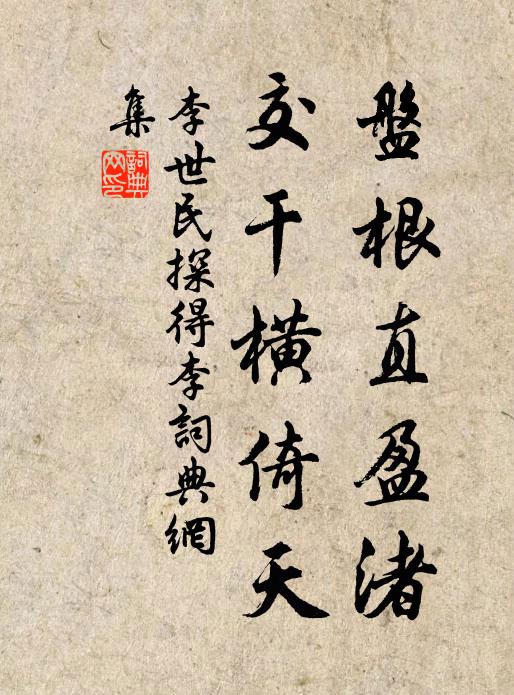 盤根直盈渚
交干橫倚天
李世民探得李詞典網
集
詞典網印